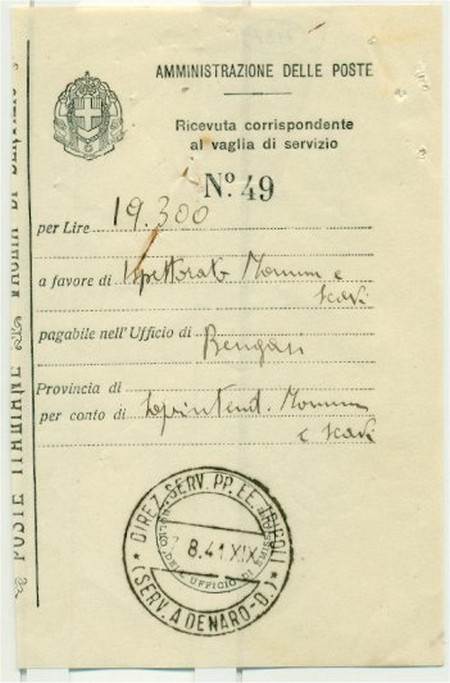 AMMINISTRAZIONE DELLE POSTE
Ricevuta corrispondente
al vaglia di servizio
N.º 49
per Lire 19.300
a favore di Ispettorato Monum e
scavi
pagabile nell'Ufficio di Bengasi
Provincia di
per conto di Soprintend. Monum
e scavi
POSTE ITALIANE VAGLIA DI SERVIZIO
DIREZ. SERV. PP. EE. TRIPOLI
8.41 XIX
BOLLO DELL'UFFICIO DI EMISS
(SERV. A DENARO-D.)